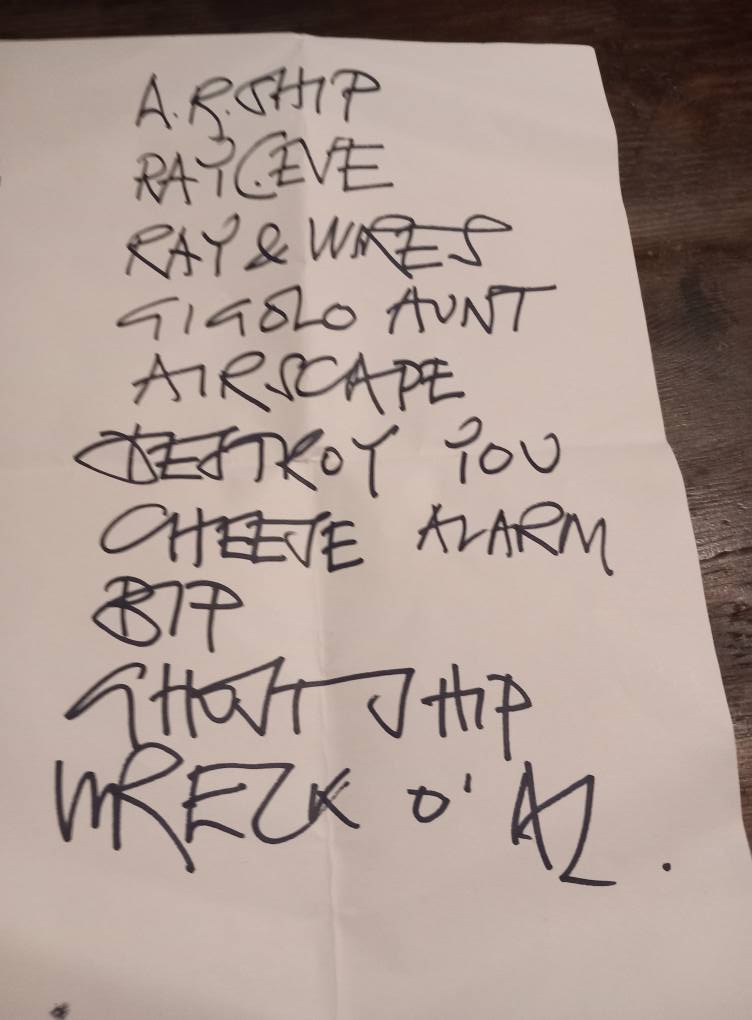 A.R.SHIP
RAY C.EVE
RAY & WIRES
GIGOLO AUNT
AIRSCAPE
DESTROY YOU
CHEESE ALARM
BTP
GHOST SHIP
WRECK O' AL.